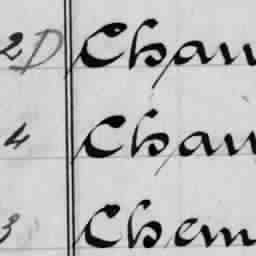 2D Chau
4 Chau
3 Chem